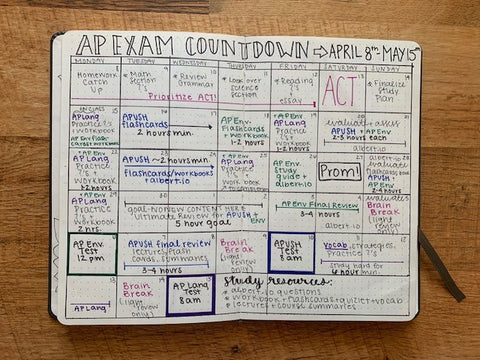 AP EXAM COUNTDOWN → APRIL 8th - MAY 15th
MONDAY TUESDAY WEDNESDAY THURSDAY FRIDAY SATURDAY SUNDAY
Homework
Catch
Up
* Math
Section
* Review
Grammar
* Look over
science
section
* Reading
?'s
+
essay
Prioritize ACT!
ACT
13
14
* Finalize
Study
Plan
AP Lang
Practice
?'s +
workbook
AP Env Flash-
APUSH
Flashcards
2 hours min.
AP Env.
Flashcards
1-2 hours
AP Lang
Practice
?'s +
workbook
evaluate + assess
APUSH + AP Env
2-3 hours each
albert.io
+ AP Env
AP Lang
Practice
?'s +
workbook
1-2 hours
APUSH ~ 2 hours min.
Flashcards/workbooks
+ albert.io
+ AP Env
AP Lang
Practice
?'s +
workbook
AP Env
Study
guide +
albert.io
27
Prom!
albert.io
evaluate
workbook
APUSH +
AP Env
2-4 hours
+ AP Env
AP Lang
Practice
?'s +
workbook
2 hrs
30
goal - No NEW CONTENT HERE
Ultimate Review for APUSH + ENV
5 hour goal
AP Env Final Review
3-4 hours
albert.io
evaluate
Brain
Break
(light
review
only)
AP Env.
Test
12 pm
APUSH final review
lectures, flash
cards, summaries
3-4 hours
Brain
Break
(light
review
only)
APUSH
Test
8 am
Vocab, strategies,
Practice ?'s
study hard for
4 hour min.
AP Lang
14
Brain
Break
(light
review only)
AP Lang
Test
8 am
Study resources:
* albert.io questions
* workbook + flashcards + quizlet + vocab
* lectures + course summaries